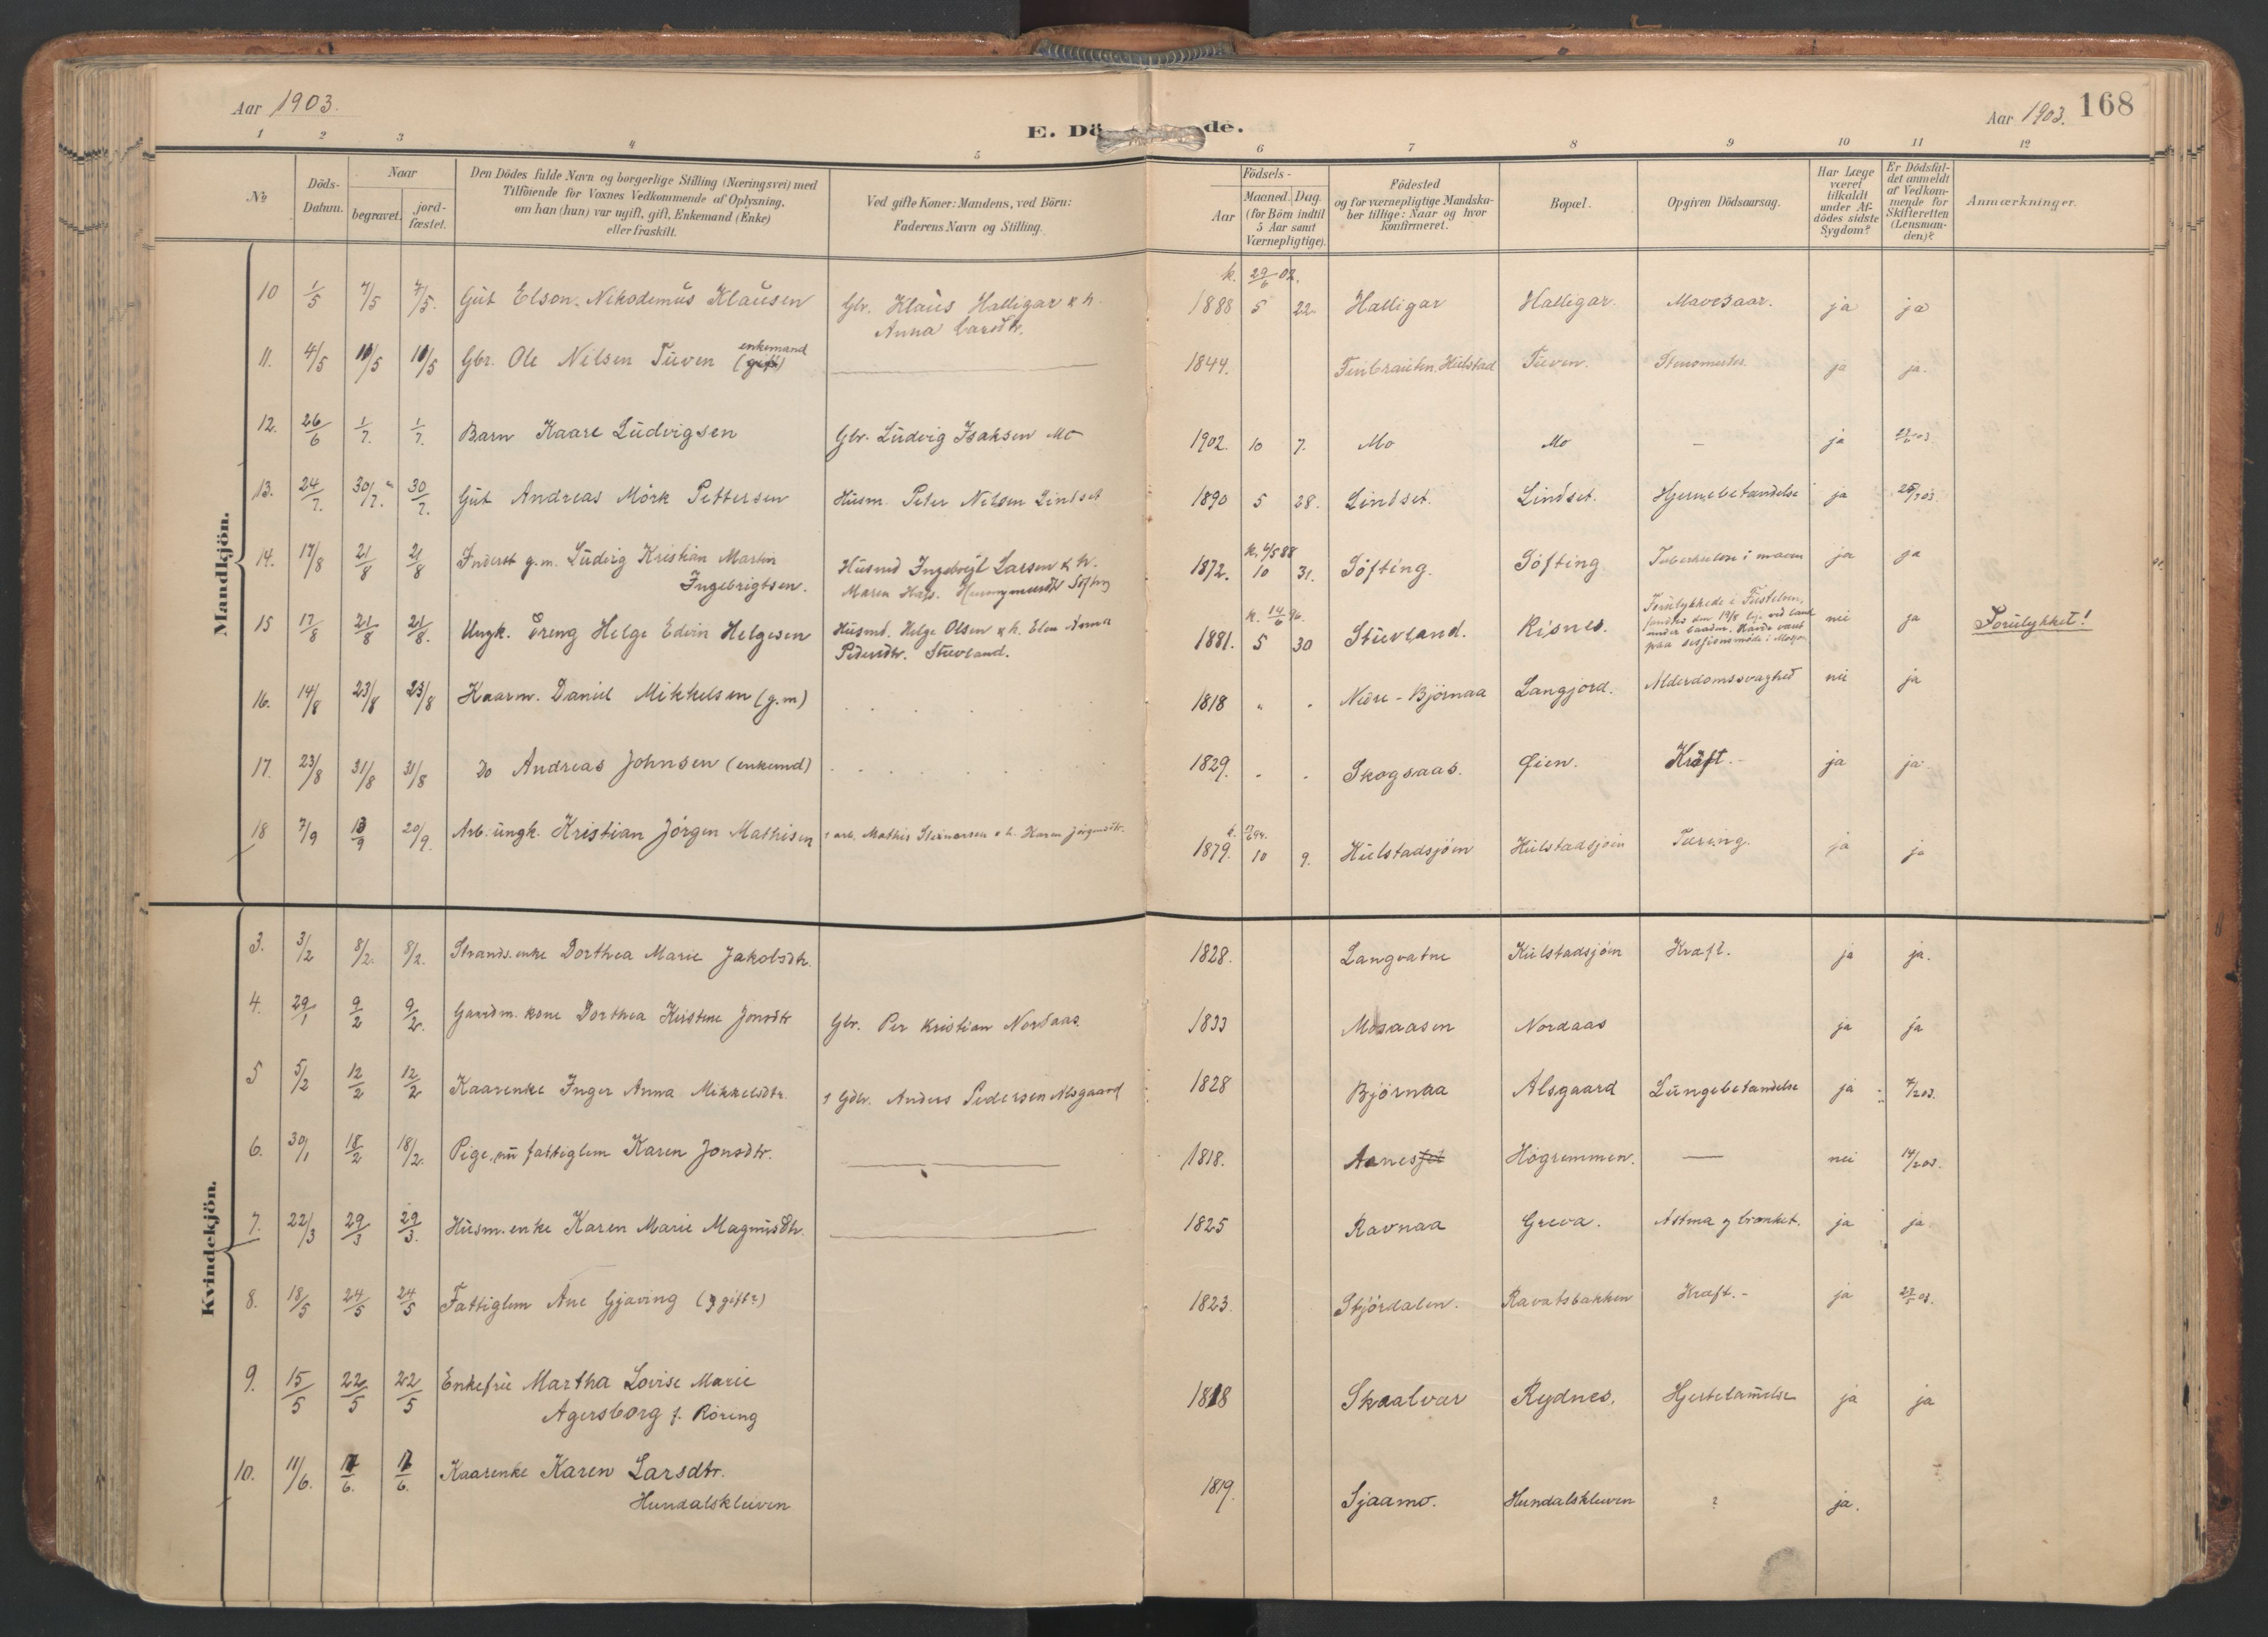 Aar 1903.
Aar 1903. 168
E. Dö de.
1 2 3 4 5 6 7 8 9 10 11 12
No
Döds-Datum.
Naar
begravet.
jord-fæstet.
Den Dödes fulde Navn og borgerlige Stilling (Næringsvei) med
Tilföiende for Voxnes Vedkommende af Oplysning,
om han (hun) var ugift, gift, Enkemand (Enke)
eller fraskilt.
Ved gifte Koner: Mandens, ved Börn:
Faderens Navn og Stilling.
Födsels-
Aar
Maaned. Dag.
(for Börn indtil
5 Aar samt
Værnepligtige).
Födested
og for værnepligtige Mandska-
ber tillige: Naar og hvor
konfirmeret.
Bopæl.
Opgiven Dödsaarsag.
Har Læge
været
tilkaldt
under Af-
dödes sidste
Sygdom?
Er Dödsfal-
det anmeldt
af Vedkom-
mende for
Skifteretten
(Lensman-
den)?
Anmærkninger.
Mandkjön.
k. 29/6 02.
10 1/5 7/5 7/5. Gut Elson. Nikodemus Klausen Gbr. Klaus Halligar & h. 1888 5 22 Halligar Halligar. Mavesaar. ja ja
Anna Larsdtr.
enkemand
11. 4/5 10/5 10/5 Gbr. Ole Nilsen Tuven (gift) 1844. Hulstad Tuven. ja ja.
12. 26/6 1/7. 1/7. Barn Kaare Ludvigsen Gbr. Ludvig Isaksen Mo 1902. 10 7. Mo Mo - ja
13. 24/7. 30/7. 30/7. Gut Andreas Mörk Pettersen Husm. Peter Nilsen Lindset 1890 5 28. Lindset. Lindset. Hjernebetændelse ja 25/7 03.
14. 17/8 21/8 21/8 Inderst g.m. Ludvig Kristian Martin
Ingebrigtsen.
Husmd Ingebrigt Larsen & h.
Maren Söfting
k. 88
1872. 10 31. Söfting. Söfting Tuberkulose i maven ja ja
15 17/8 21/8 21/8. Ungk. Dreng Helge Edvin Helgesen Husmd. Helge Olsen & h. Elen Anna
Pedersdtr. Stuvland.
k. 14/6 96.
1881. 5 30 Stuvland. Risnes.
Forulykkede i Fustelven,
fandtes den 19/8 ved land
under baaden. Havde været
paa sessionsmöde i Mosjöen
nei ja Forulykket!
16. 14/8 23/8 23/8 Kaarm. Daniel Mikkelsen (g.m) 1818 " . Nedre-Björnaa Langjord. Alderdomssvaghed nei ja
17. 23/8 31/8 31/8 Do Andreas Johnsen (enkemd) 1829. . . Skogsaas. Öien. Kræft.- ja ja.
18 7/9 13/9 20/9. Arb. ungk. Kristian Jörgen Mathisen arb. Mathis Steinarsen & h. Karen Jörgensdtr. 1879. 10 9. Hulstadsjöen Hulstadsjöen Tæring. ja ja
Kvindekjön.
3. 3/2 8/2. 8/2. Strands.enke Dorthea Marie Jakobsdtr. 1828. Langvatne Kulstadsjöen Kræft. ja ja.
4. 29/1 9/2 9/2. Gaardm. kone Dorthea Kirstine Jonsdtr Gbr. Per Kristian Nordaas. 1833 Mosaasen Nordaas ja ja
5 5/2 12/2 12/2 Kaarenke Inger Anna Mikkelsdtr. Gbr. Anders Pedersen Alsgaard 1828 Björnaa Alsgaard Lungebetændelse ja 7/2 03.
6. 30/1 18/2 18/2. Pige, nu fattiglem Karen Jonsdtr. 1818. Aanes Högremmen. - nei 14/2 03.
7. 22/3 29/3 29/3. Husm. enke Karen Marie Magnusdtr. 1825 Ravnaa Greva. Astma og bronket. ja ja.
8. 18/5 24/5 24/5 Fattiglem Ane Gjæving (gift?) 1823. Stjördalen. Ravatsbakken Kræft.- ja 03.
9. 15/5 22/5 22/5 Enkefru Martha Lovise Marie
Agersborg f. Röring
1818 Skaalvær Rydnes. Hjertelammelse ja ja
10. 11/6. 17/6. 17/6. Kaarenke Karen Larsdtr.
Hundalskleiven
1819. Sjaamo. Hundalskleiven ? ja.